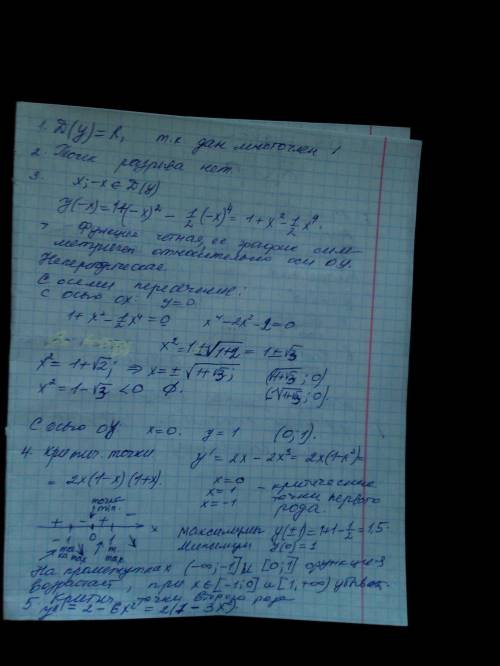 1. D(y)=R, т.к дан многочлен
2. Точек разрыва нет
3.
x; -x ∈ D(y)
y(-x)=1+(-x)² - 1/2(-x)⁴ = 1+x²-1/2x⁴.
Функция четная, ее график сим-
метричен относительно оси OY.
Непериодическая.
С осями пересечение:
С осью ox: y=0.
1+x²-1/2x⁴=0 x⁴-2x²-2=0
x²=1±√1+2 = 1±√3
x²=1+√2; ⇒ x=±√1+√3; (√1+√3; 0)
x²=1-√3 <0 ∅. (-√1+√3; 0).
С осью OY: x=0. y=1 (0;1).
4. Критич. точки y'=2x-2x³=2x(1-x²)=
=2x(1-x)(1+x). x=0
x=1 - критические
x=-1 точки первого
рода.
точка
min.
+ - + - x
-1 0 1
max
Максимумы y(±1)=1+1-1/2=1,5.
Минимум y(0)=1
На промежутках (-∞;-1] и [0;1] функция
возрастает, при x∈[-1;0] и [1,+∞) убывает.
5. Критич. точки второго рода
y''=2-6x²=2(1-3x²)